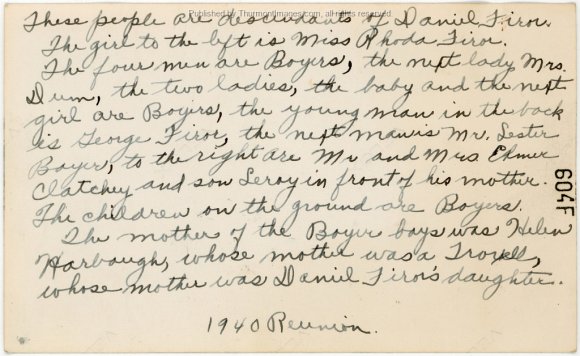 Published by Thurmontimages.com, all rights reserved
These people are descendants of Daniel Firor.
The girl to the left is Miss Rhoda Firor.
The four men are Boyers, the next lady Mrs.
Dum, the two ladies, the baby and the next
girl are Boyers, the young man in the back
is George Firor, the next man is Mr. Lester
Boyer, to the right are Mr and Mrs Elmer
Clatchey and son Leroy in front of his mother.
The children on the ground are Boyers.
The mother of the Boyer boys was Helen
Harbaugh, whose mother was a Troxell,
whose mother was Daniel Firor's daughter.
1940 Reunion.
604F